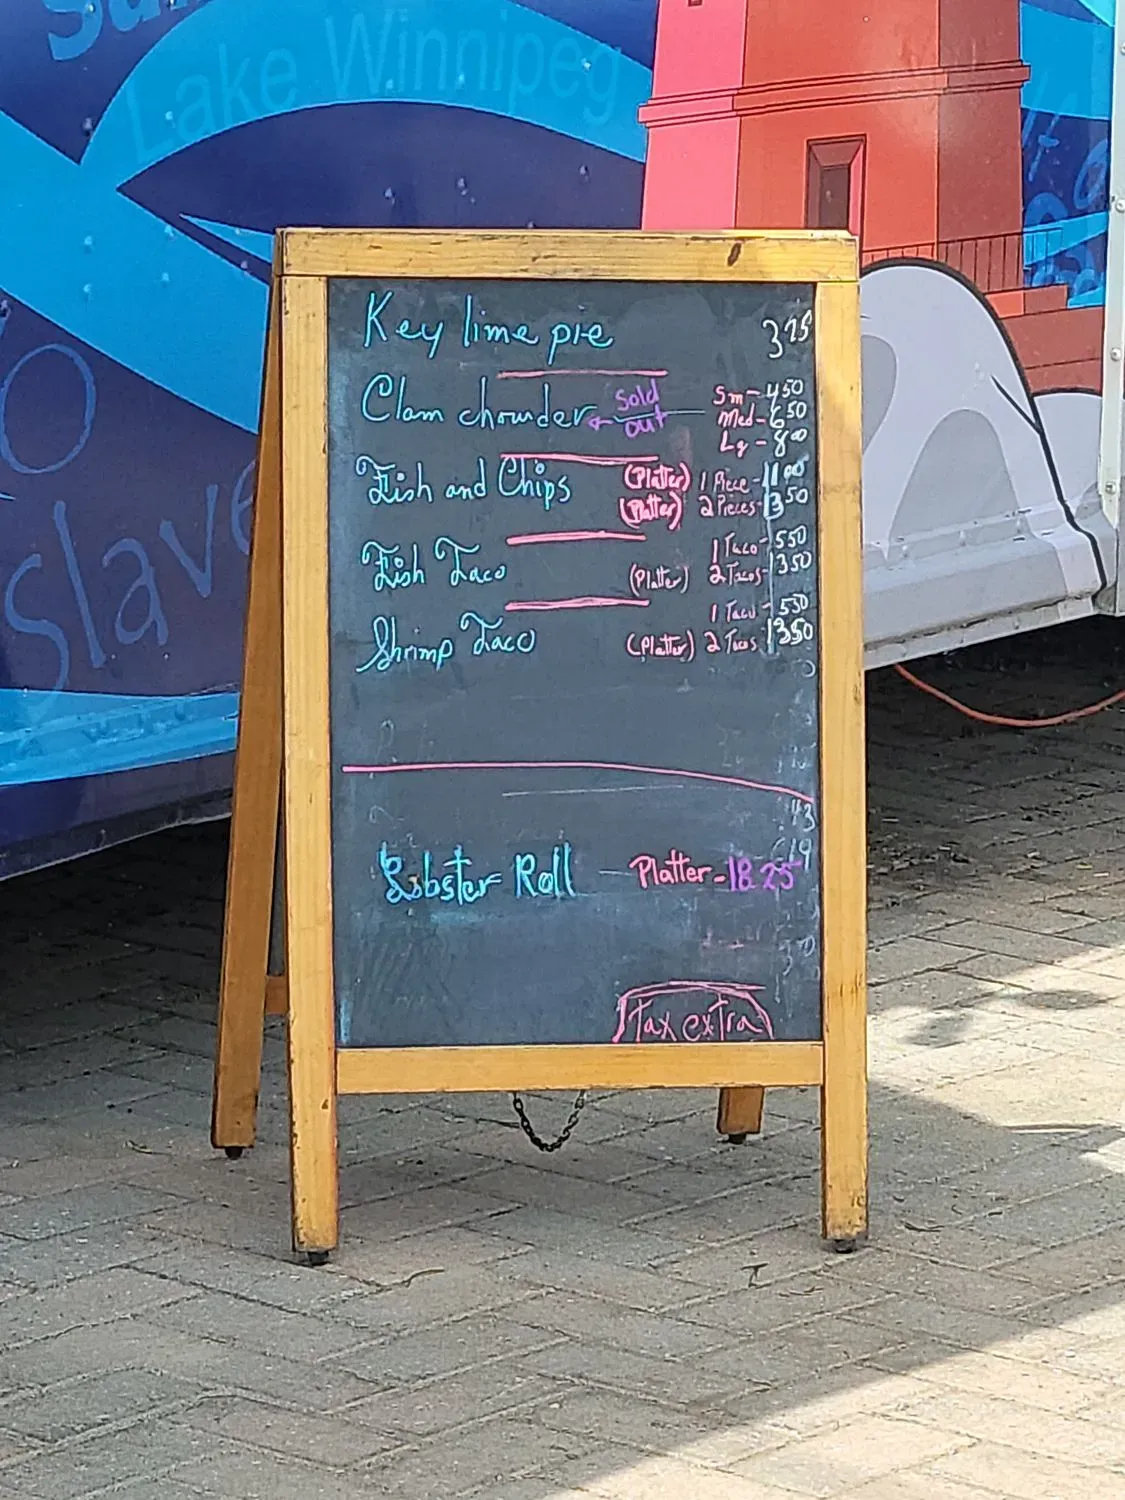 Lake Winnipeg
Slave
Key lime pie 3.75
Clam chowder ← Sold out
Sm - 4.50
Med - 6.50
Lg - 8.00
Fish and Chips (Platter) 1 Piece - 11.00
(Platter) 2 Pieces - 13.50
1 Taco - 5.50
Fish Taco (Platter) 2 Tacos - 13.50
1 Taco - 5.50
Shrimp Taco (Platter) 2 Tacos 13.50
Lobster Roll - Platter - 18.25
Tax extra